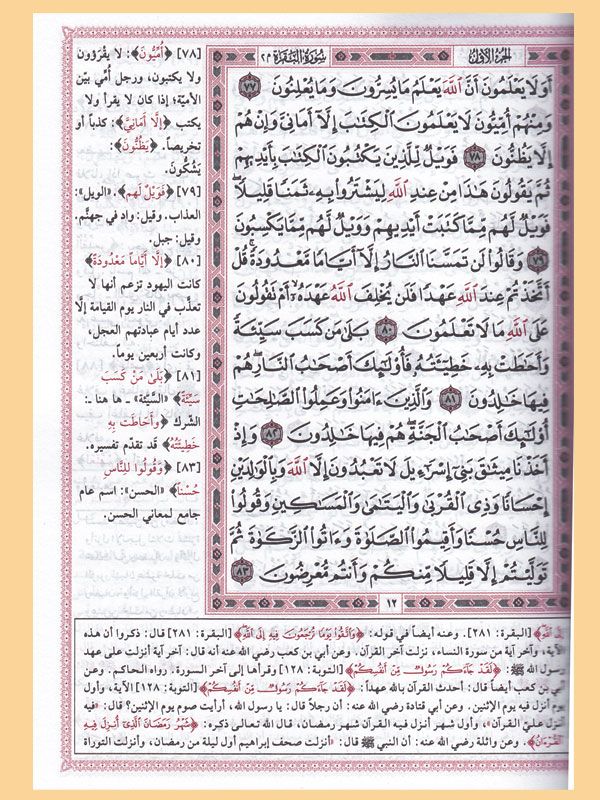 الجزء الأول
سورة البقرة ٢
أَوَلَا يَعْلَمُونَ أَنَّ اللَّهَ يَعْلَمُ مَا يُسِرُّونَ وَمَا يُعْلِنُونَ ٧٧
وَمِنْهُمْ أُمِّيُّونَ لَا يَعْلَمُونَ الْكِتَابَ إِلَّا أَمَانِيَّ وَإِنْ هُمْ
إِلَّا يَظُنُّونَ ٧٨ فَوَيْلٌ لِلَّذِينَ يَكْتُبُونَ الْكِتَابَ بِأَيْدِيهِمْ
ثُمَّ يَقُولُونَ هَذَا مِنْ عِنْدِ اللَّهِ لِيَشْتَرُوا بِهِ ثَمَنًا قَلِيلًا
فَوَيْلٌ لَهُمْ مِمَّا كَتَبَتْ أَيْدِيهِمْ وَوَيْلٌ لَهُمْ مِمَّا يَكْسِبُونَ
٧٩ وَقَالُوا لَنْ تَمَسَّنَا النَّارُ إِلَّا أَيَّامًا مَعْدُودَةً قُلْ
أَتَّخَذْتُمْ عِنْدَ اللَّهِ عَهْدًا فَلَنْ يُخْلِفَ اللَّهُ عَهْدَهُ أَمْ تَقُولُونَ
عَلَى اللَّهِ مَا لَا تَعْلَمُونَ ٨٠ بَلَى مَنْ كَسَبَ سَيِّئَةً
وَأَحَاطَتْ بِهِ خَطِيئَتُهُ فَأُولَئِكَ أَصْحَابُ النَّارِ هُمْ
فِيهَا خَالِدُونَ ٨١ وَالَّذِينَ آمَنُوا وَعَمِلُوا الصَّالِحَاتِ
أُولَئِكَ أَصْحَابُ الْجَنَّةِ هُمْ فِيهَا خَالِدُونَ ٨٢ وَإِذْ
أَخَذْنَا مِيثَاقَ بَنِي إِسْرَائِيلَ لَا تَعْبُدُونَ إِلَّا اللَّهَ وَبِالْوَالِدَيْنِ
إِحْسَانًا وَذِي الْقُرْبَى وَالْيَتَامَى وَالْمَسَاكِينِ وَقُولُوا
لِلنَّاسِ حُسْنًا وَأَقِيمُوا الصَّلَاةَ وَآتُوا الزَّكَاةَ ثُمَّ
تَوَلَّيْتُمْ إِلَّا قَلِيلًا مِنْكُمْ وَأَنْتُمْ مُعْرِضُونَ ٨٣
١٢
[٧٨] ﴿أُمِّيُّونَ﴾: لا يقرؤون
ولا يكتبون، ورجل أُمِّي بيّن
الأميّة؛ إذا كان لا يقرأ ولا
يكتب ﴿إِلَّا أَمَانِيَّ﴾: كذباً أو
تخريصاً. ﴿يَظُنُّونَ﴾:
يَشُكُّونَ.
[٧٩] ﴿فَوَيْلٌ لَهُم﴾. «الويل»:
العذاب. وقيل: واد في جهنَّم.
وقيل: جبل.
[٨٠] ﴿إِلَّا أَيَّاماً مَعْدُودَةً﴾
كانت اليهود تزعم أنها لا
تعذَّب في النار يوم القيامة إلَّا
عدد أيام عبادتهم العجل،
وكانت أربعين يوماً.
[٨١] ﴿بَلَى مَنْ كَسَبَ
سَيِّئَةً﴾ «السيِّئة» ـ ها هنا ـ:
الشّرك ﴿وَأَحَاطَتْ بِهِ
خَطِيئَتُهُ﴾ قد تقدَّم تفسيره.
[٨٣] ﴿وَقُولُوا لِلنَّاسِ
حُسْناً﴾ «الحسن»: اسم عام
جامع لمعاني الحسن.
إِلَى اللَّهِ﴾ [البقرة: ٢٨١]. وعنه أيضاً في قوله: ﴿وَاتَّقُوا يَوْمًا تُرْجَعُونَ فِيهِ إِلَى اللَّهِ﴾ [البقرة: ٢٨١] قال: ذكروا أن هذه
الآية، وآخر آية من سورة النساء، نزلت آخر القرآن. وعن أبي بن كعب رضي الله عنه أنه قال: آخر آية أنزلت على عهد
رسول الله ﷺ: ﴿لَقَدْ جَاءَكُمْ رَسُولٌ مِنْ أَنْفُسِكُمْ﴾ [التوبة: ١٢٨] وقرأها إلى آخر السورة. رواه الحاكم. وعن
أبي بن كعب أيضاً قال: أحدث القرآن بالله عهداً: ﴿لَقَدْ جَاءَكُمْ رَسُولٌ مِنْ أَنْفُسِكُمْ﴾ [التوبة: ١٢٨] الآية، وأول
يوم أنزل فيه يوم الإثنين. وعن أبي قتادة رضي الله عنه: أن رجلاً قال: يا رسول الله، أرأيت صوم يوم الإثنين؟ قال: «فيه
أنزل عليّ القرآن»، وأول شهر أنزل فيه القرآن شهر رمضان، قال الله تعالى ذكره: ﴿شَهْرُ رَمَضَانَ الَّذِي أُنْزِلَ فِيهِ
الْقُرْآنُ﴾. وعن واثلة رضي الله عنه: أن النبي ﷺ قال: «أنزلت صحف إبراهيم أول ليلة من رمضان، وأنزلت التوراة